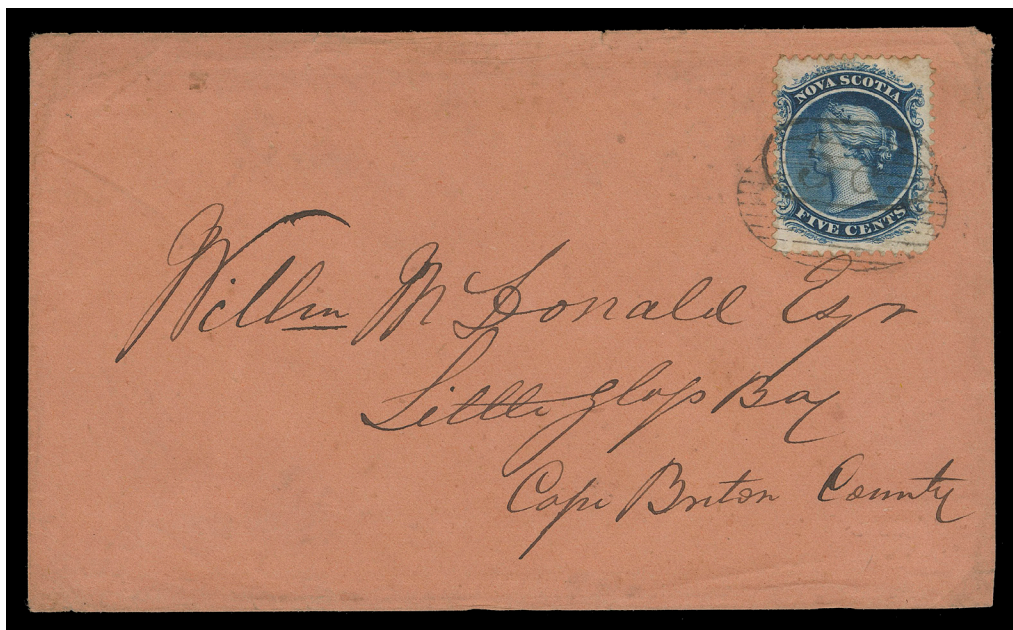 NOVA SCOTIA
FIVE CENTS
Willm McDonald Esqr
Little Glass Bay
Cape Briton County